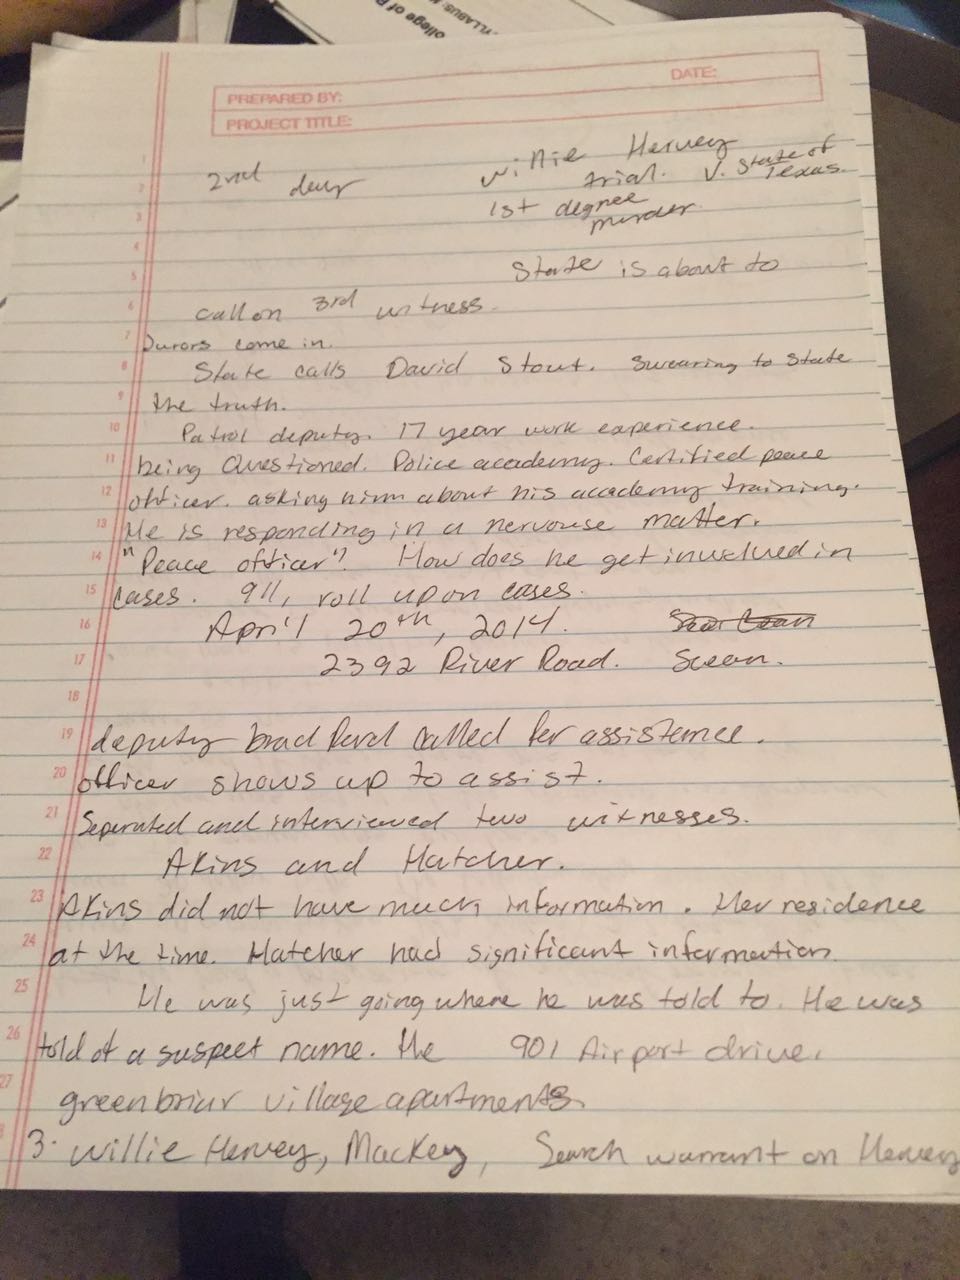 ollege of
SYLLABUS:
PREPARED BY:
DATE:
PROJECT TITLE:
2nd day
Willie Hervey
trial. V. State of
Texas.
1st degree
murder.
State is about to
call on 3rd witness.
Jurors come in.
State calls David Stout. Swearing to state
the truth.
Patrol deputy. 17 year work experience.
being Questioned. Police academy. Certified peace
officer. asking him about his academy training.
He is responding in a nervouse matter.
"Peace officer"? How does he get involved in
cases. 911, roll up on cases.
April 20th, 2014.
2392 River Road. Swean.
deputy brad called for assistence.
Officer shows up to assist.
Seperated and interviewed two witnesses.
Akins and Hatcher.
Akins did not have much information. Her residence
at the time. Hatcher had significant information
He was just going where he was told to. He was
told of a suspect name. He 901 Airport drive.
greenbriar village apartments.
3. Willie Hervey, Mackey, Search warrant on Hervey
1
2
3
4
5
6
7
8
9
10
11
12
13
14
15
16
17
18
19
20
21
22
23
24
25
26
27